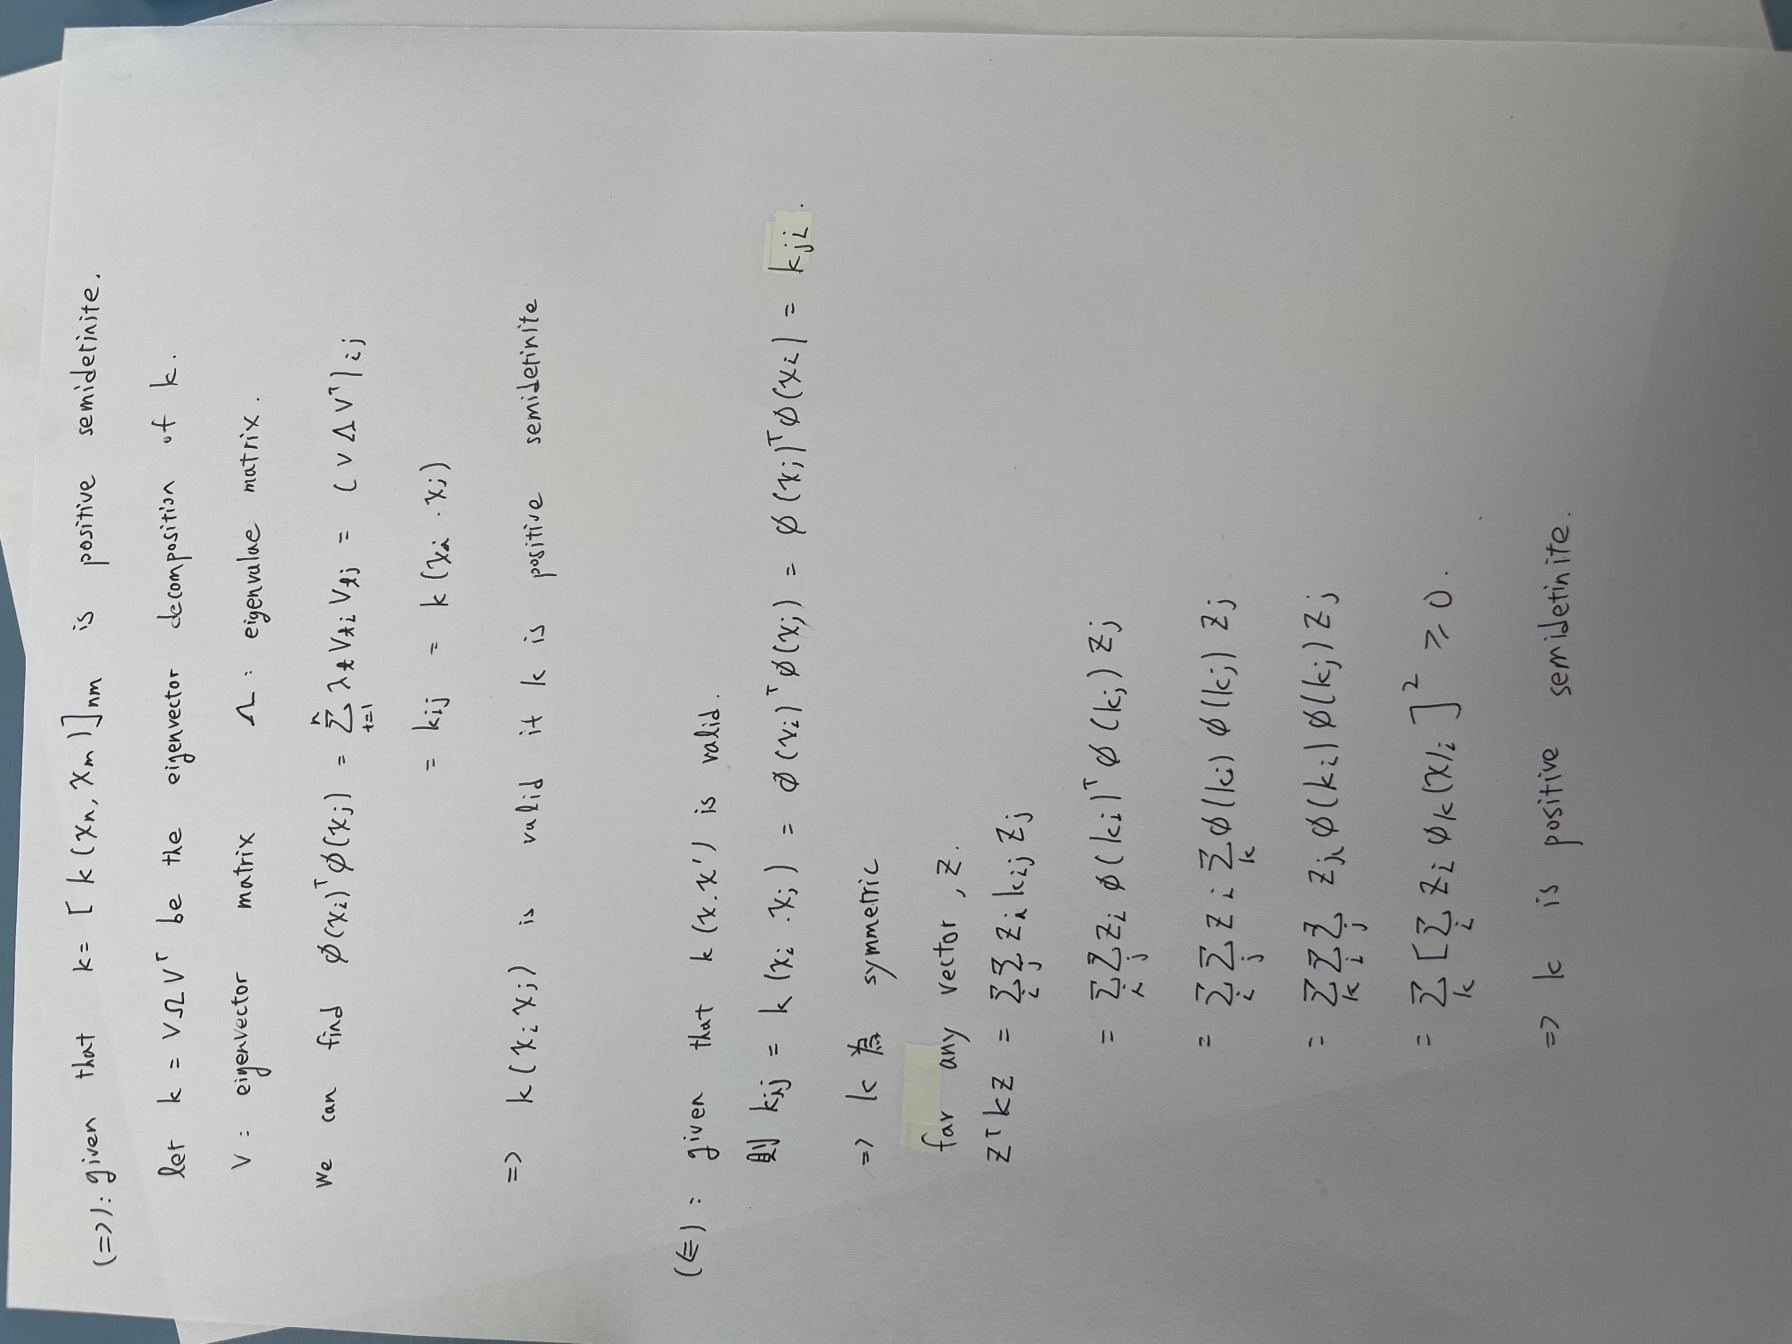 (=>): given that k = [ k (xn, xm) ]nm is positive semidefinite.
let k = VΩV^T be the eigenvector decomposition of k.
V : eigenvector matrix Ω : eigenvalue matrix.
We can find ∅(xi)^T ∅(xj) = Σ_{t=1}^{n} λt Vti Vtj = ( V Λ V^T )ij
= kij = k (xi . xj)
=> k (xi xj) is valid if k is positive semidefinite
(<=) : given that k (x.x') is valid.
則 kij = k (xi . xj) = ∅(xi)^T ∅(xj) = ∅(xj)^T ∅(xi) = kji .
=> k 為 symmetric
far any vector, z.
z^T k z = Σ_i Σ_j zi kij zj
= Σ_i Σ_j zi ∅(ki)^T ∅(kj) zj
= Σ_i Σ_j zi Σ_k ∅(ki) ∅(kj) zj
= Σ_k Σ_i Σ_j zi ∅(ki) ∅(kj) zj
= Σ_k [ Σ_i zi ∅k(x)i ]^2 ≥ 0.
=> k is positive semidefinite.